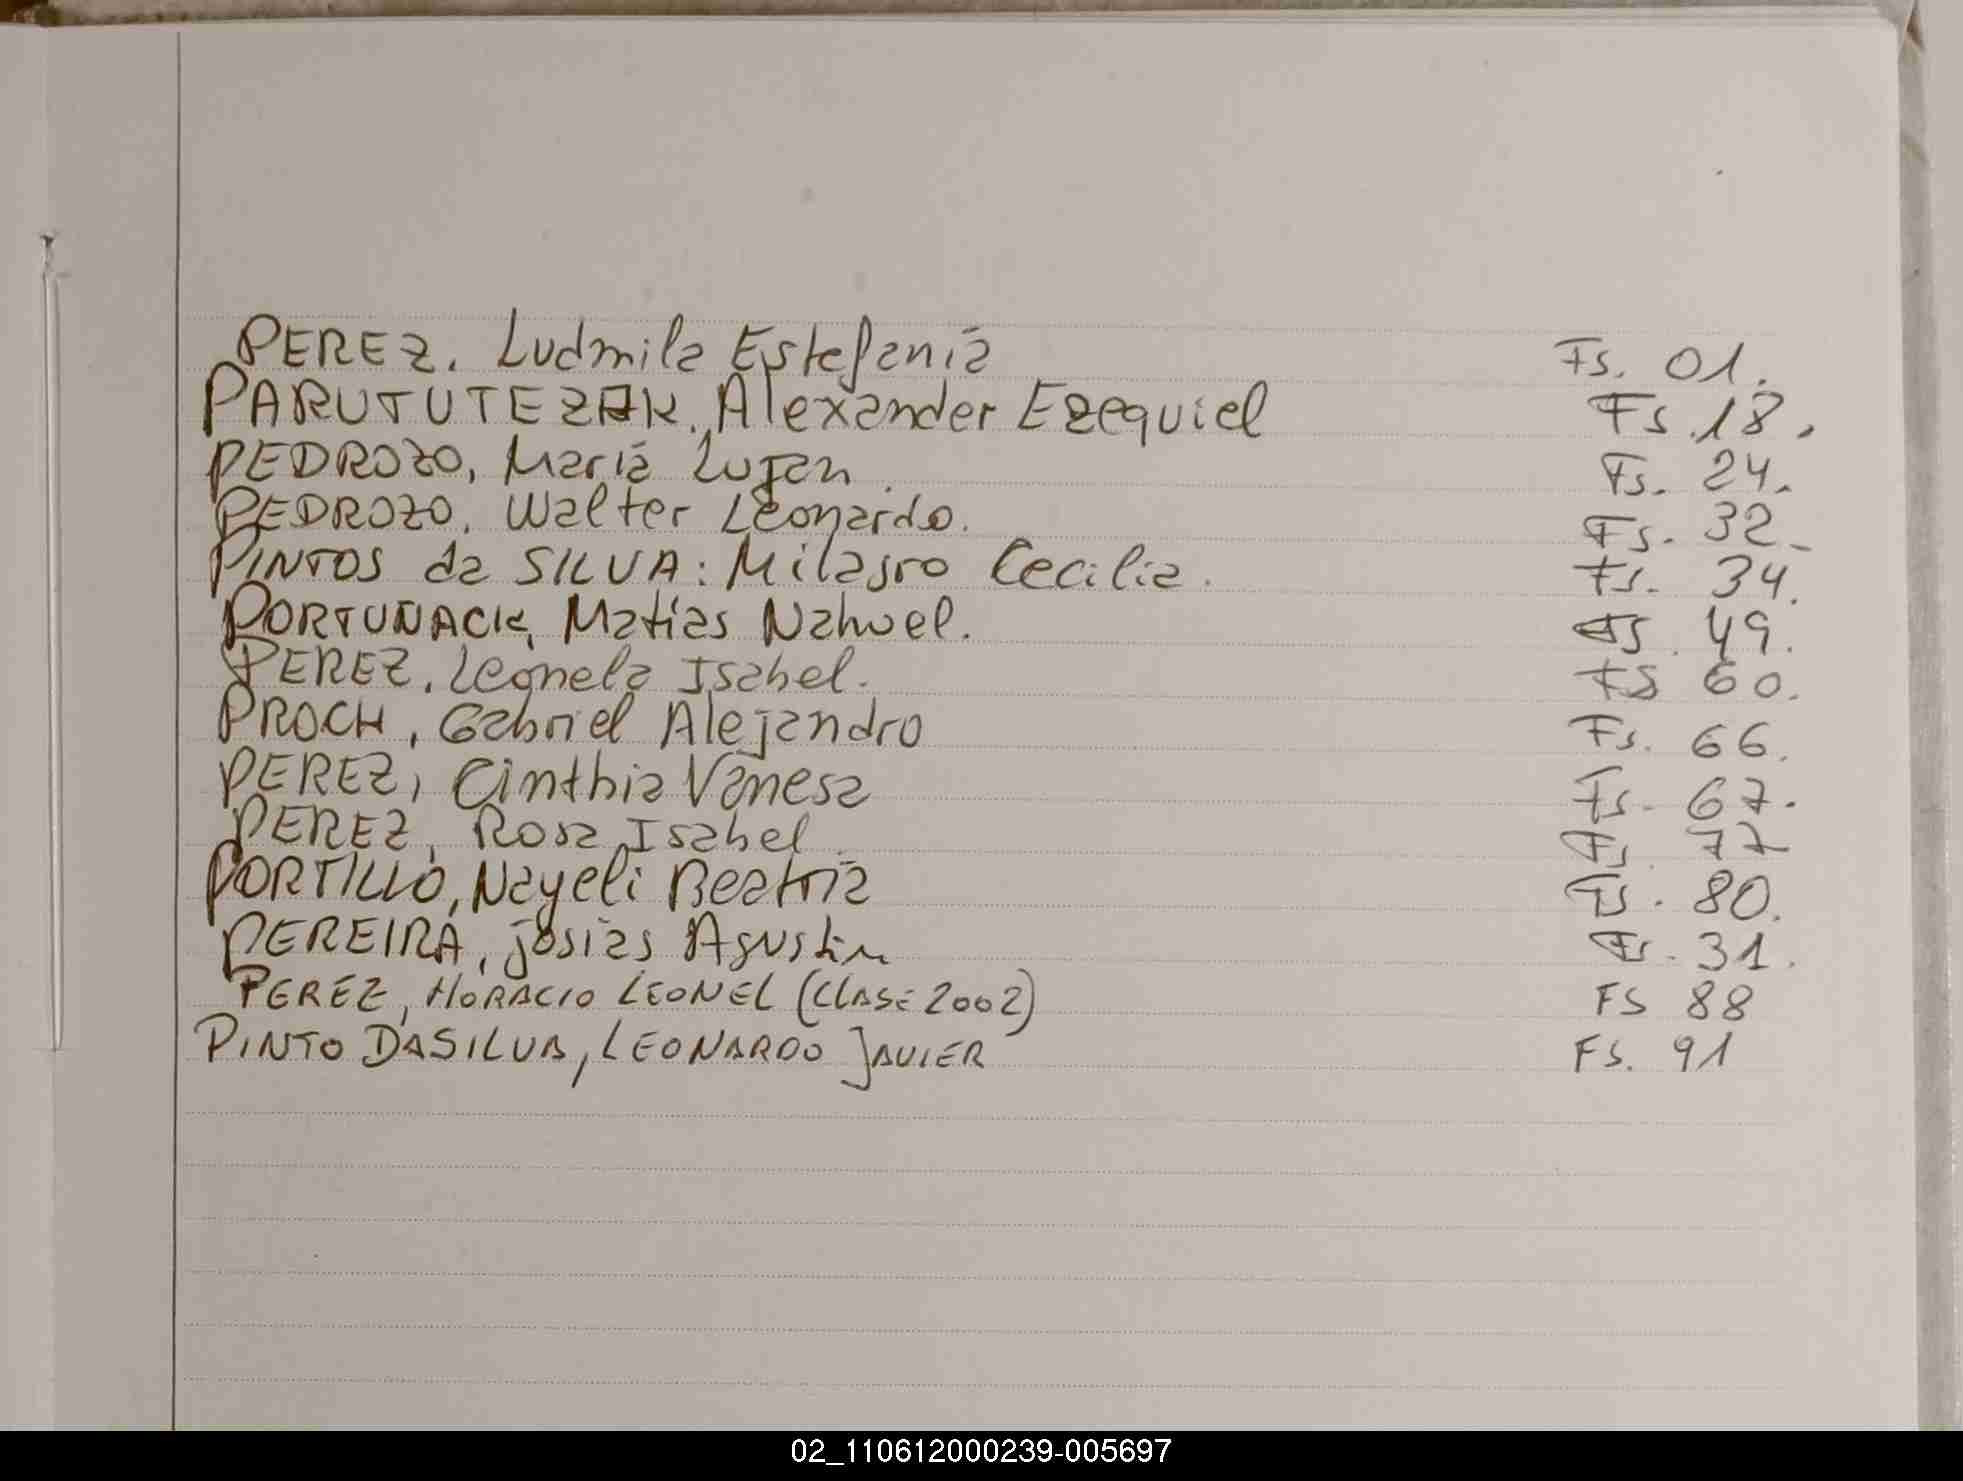 PEREZ, Ludmila Estefania Fs. 01.
PARUTUTEZAK, Alexander Ezequiel Fs. 18.
PEDROZO, Maria Lujan. Fs. 24.
PEDROZO, Walter Leonardo. Fs. 32
PINTOS da SILVA: Milagro Cecilia. Fs. 34.
PORTUÑACK, Matias Nahuel. Fs. 49.
PEREZ, Leonela Isabel. FS 60.
PROCH, Gabriel Alejandro Fs. 66.
PEREZ, Cinthia Vanesa Fs. 67.
PEREZ, Rosa Isabel. Fs. 77
PORTILLO, Nayeli Beatriz Fs. 80.
PEREIRA, josias Agustin Fs. 31.
PEREZ, HORACIO LEONEL (CLASE 2002) FS 88
PINTO DASILVA, LEONARDO JAVIER FS. 91
02_110612000239-005697